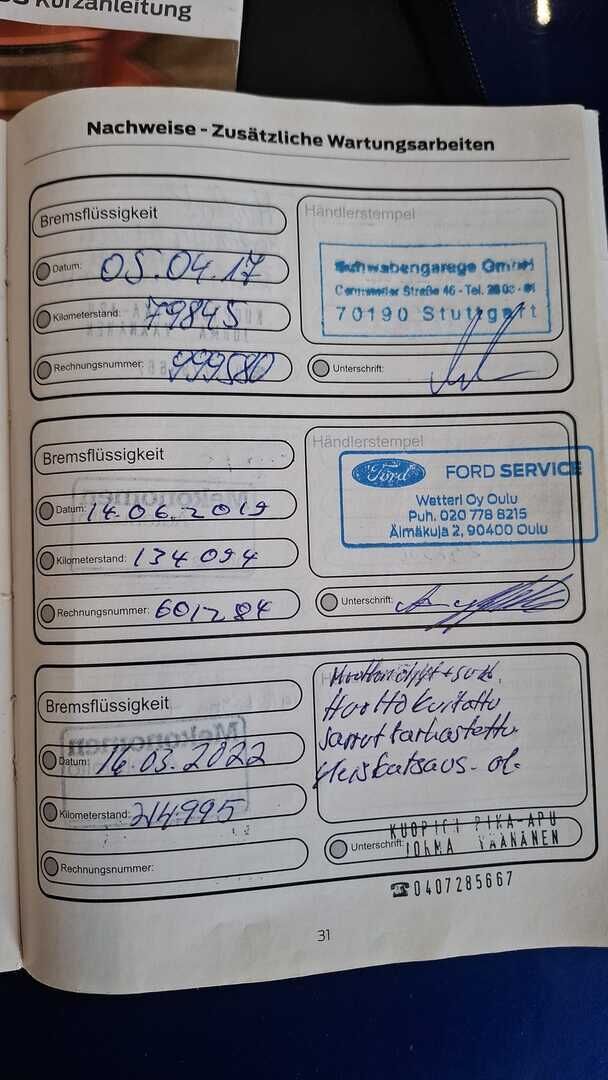 Kurzanleitung
Nachweise - Zusätzliche Wartungsarbeiten
Bremsflüssigkeit
Händlerstempel
Datum: 05.04.17
Schwabengarage GmbH
Straße 46 - Tel.
70190 Stuttgart
Kilometerstand: 79845
Rechnungsnummer: 999580
Unterschrift:
Bremsflüssigkeit
Händlerstempel
Ford FORD SERVICE
Wetteri Oy Oulu
Puh. 020 778 8215
Älmäkuja 2, 90400 Oulu
Datum: 14.06.2019
Kilometerstand: 134 094
Rechnungsnummer: 601284
Unterschrift:
Bremsflüssigkeit
Huollettu
Jarrut tarkastettu
Yleiskatsaus. ok.
Datum: 16.03.2022
Mekonomen
Kilometerstand: 214995
Rechnungsnummer:
Unterschrift:
KUOPION PIKA-APU
JORMA VÄÄNÄNEN
☎0407285667
31